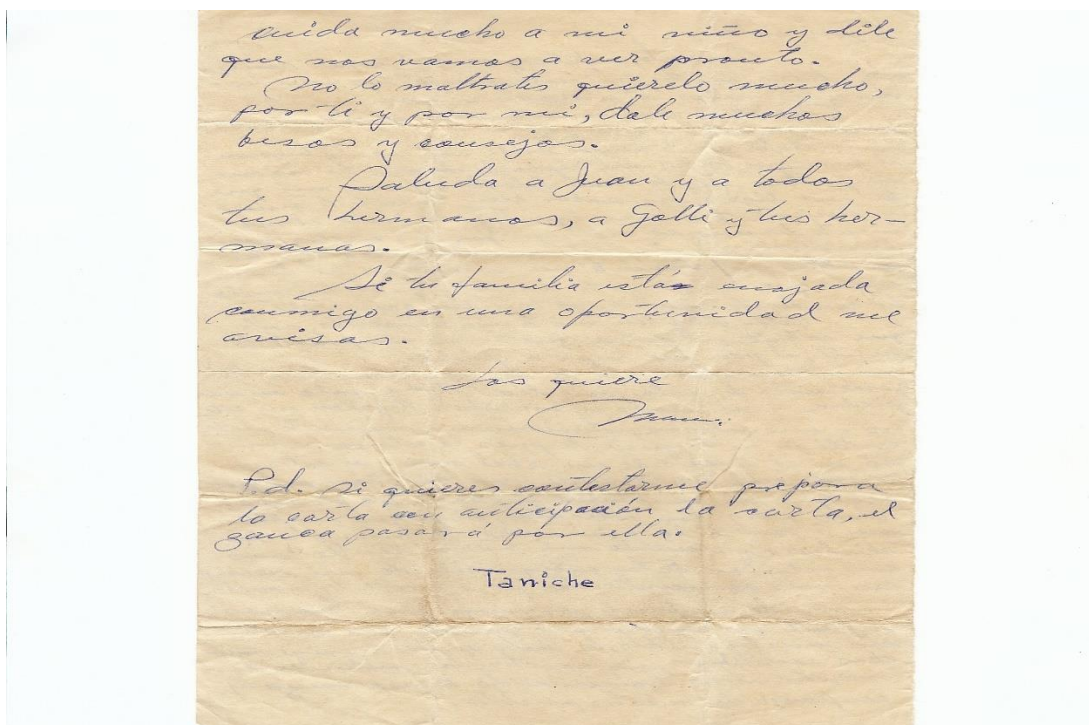 cuida mucho a mi niño y dile
que nos vamos a ver pronto.
No lo maltrates quierelo mucho,
por ti y por mi, dale muchos
besos y consejos.
Saluda a Juan y a todos
tus hermanos, a Galli y tus her-
manas.
Si tu familia está enojada
conmigo en una oportunidad me
avisas.
Los quiere
P.d. si quieres contestarme prepara
la carta con anticipación la carta, el
pasará por ella.
Taniche